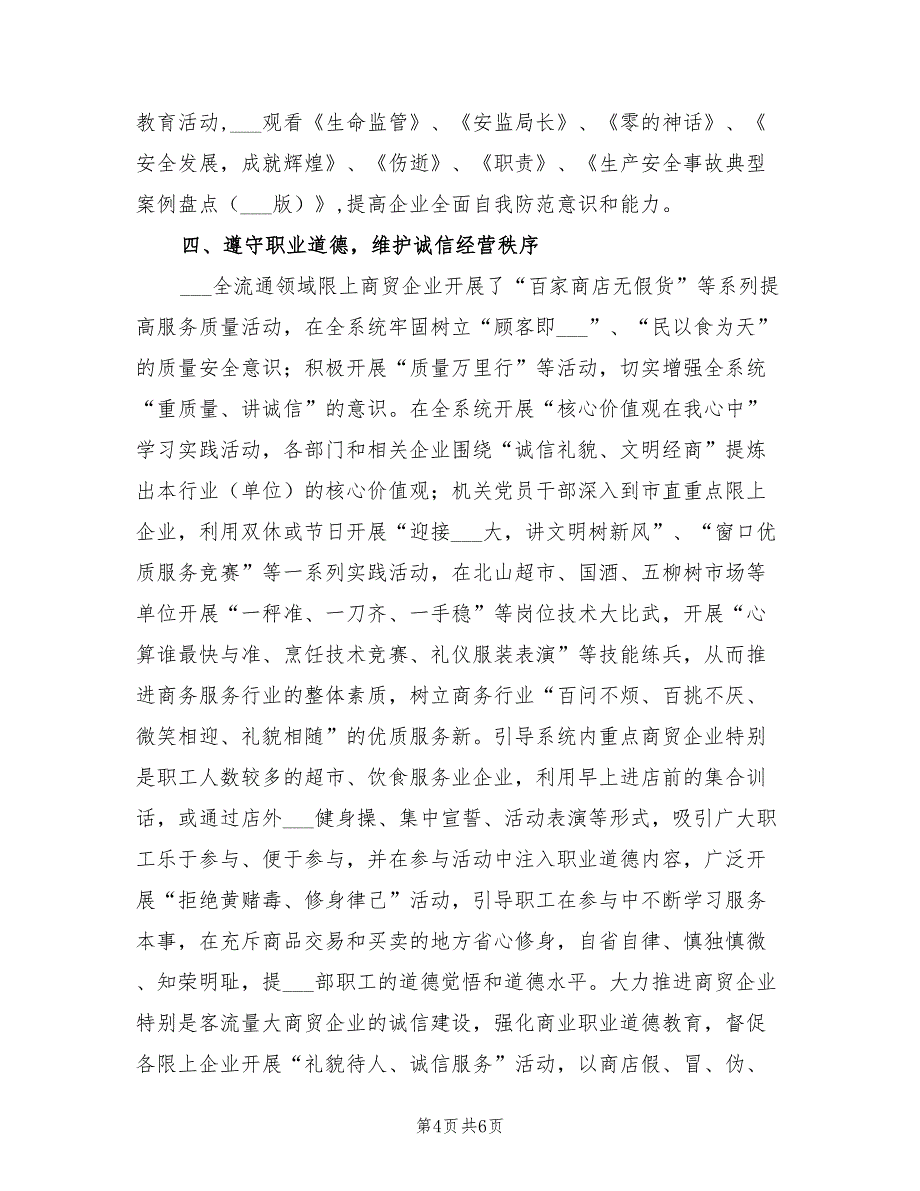 教育活动,___观看《生命监管》、《安监局长》、《零的神话》、《
安全发展，成就辉煌》、《伤逝》、《职责》、《生产安全事故典型
案例盘点（___版）》,提高企业全面自我防范意识和能力。
四、遵守职业道德，维护诚信经营秩序
___全流通领域限上商贸企业开展了“百家商店无假货”等系列提
高服务质量活动，在全系统牢固树立“顾客即___”、“民以食为天”
的质量安全意识；积极开展“质量万里行”等活动，切实增强全系统
“重质量、讲诚信”的意识。在全系统开展“核心价值观在我心中”
学习实践活动，各部门和相关企业围绕“诚信礼貌、文明经商”提炼
出本行业（单位）的核心价值观；机关党员干部深入到市直重点限上
企业，利用双休或节日开展“迎接___大，讲文明树新风”、“窗口优
质服务竞赛”等一系列实践活动，在北山超市、国酒、五柳树市场等
单位开展“一秤准、一刀齐、一手稳”等岗位技术大比武，开展“心
算谁最快与准、烹饪技术竞赛、礼仪服装表演”等技能练兵，从而推
进商务服务行业的整体素质，树立商务行业“百问不烦、百挑不厌、
微笑相迎、礼貌相随”的优质服务新。引导系统内重点商贸企业特别
是职工人数较多的超市、饮食服务业企业，利用早上进店前的集合训
话，或通过店外___健身操、集中宣誓、活动表演等形式，吸引广大职
工乐于参与、便于参与，并在参与活动中注入职业道德内容，广泛开
展“拒绝黄赌毒、修身律己”活动，引导职工在参与中不断学习服务
本事，在充斥商品交易和买卖的地方省心修身，自省自律、慎独慎微
、知荣明耻，提___部职工的道德觉悟和道德水平。大力推进商贸企业
特别是客流量大商贸企业的诚信建设，强化商业职业道德教育，督促
各限上企业开展“礼貌待人、诚信服务”活动，以商店假、冒、伪、
第4页共6页